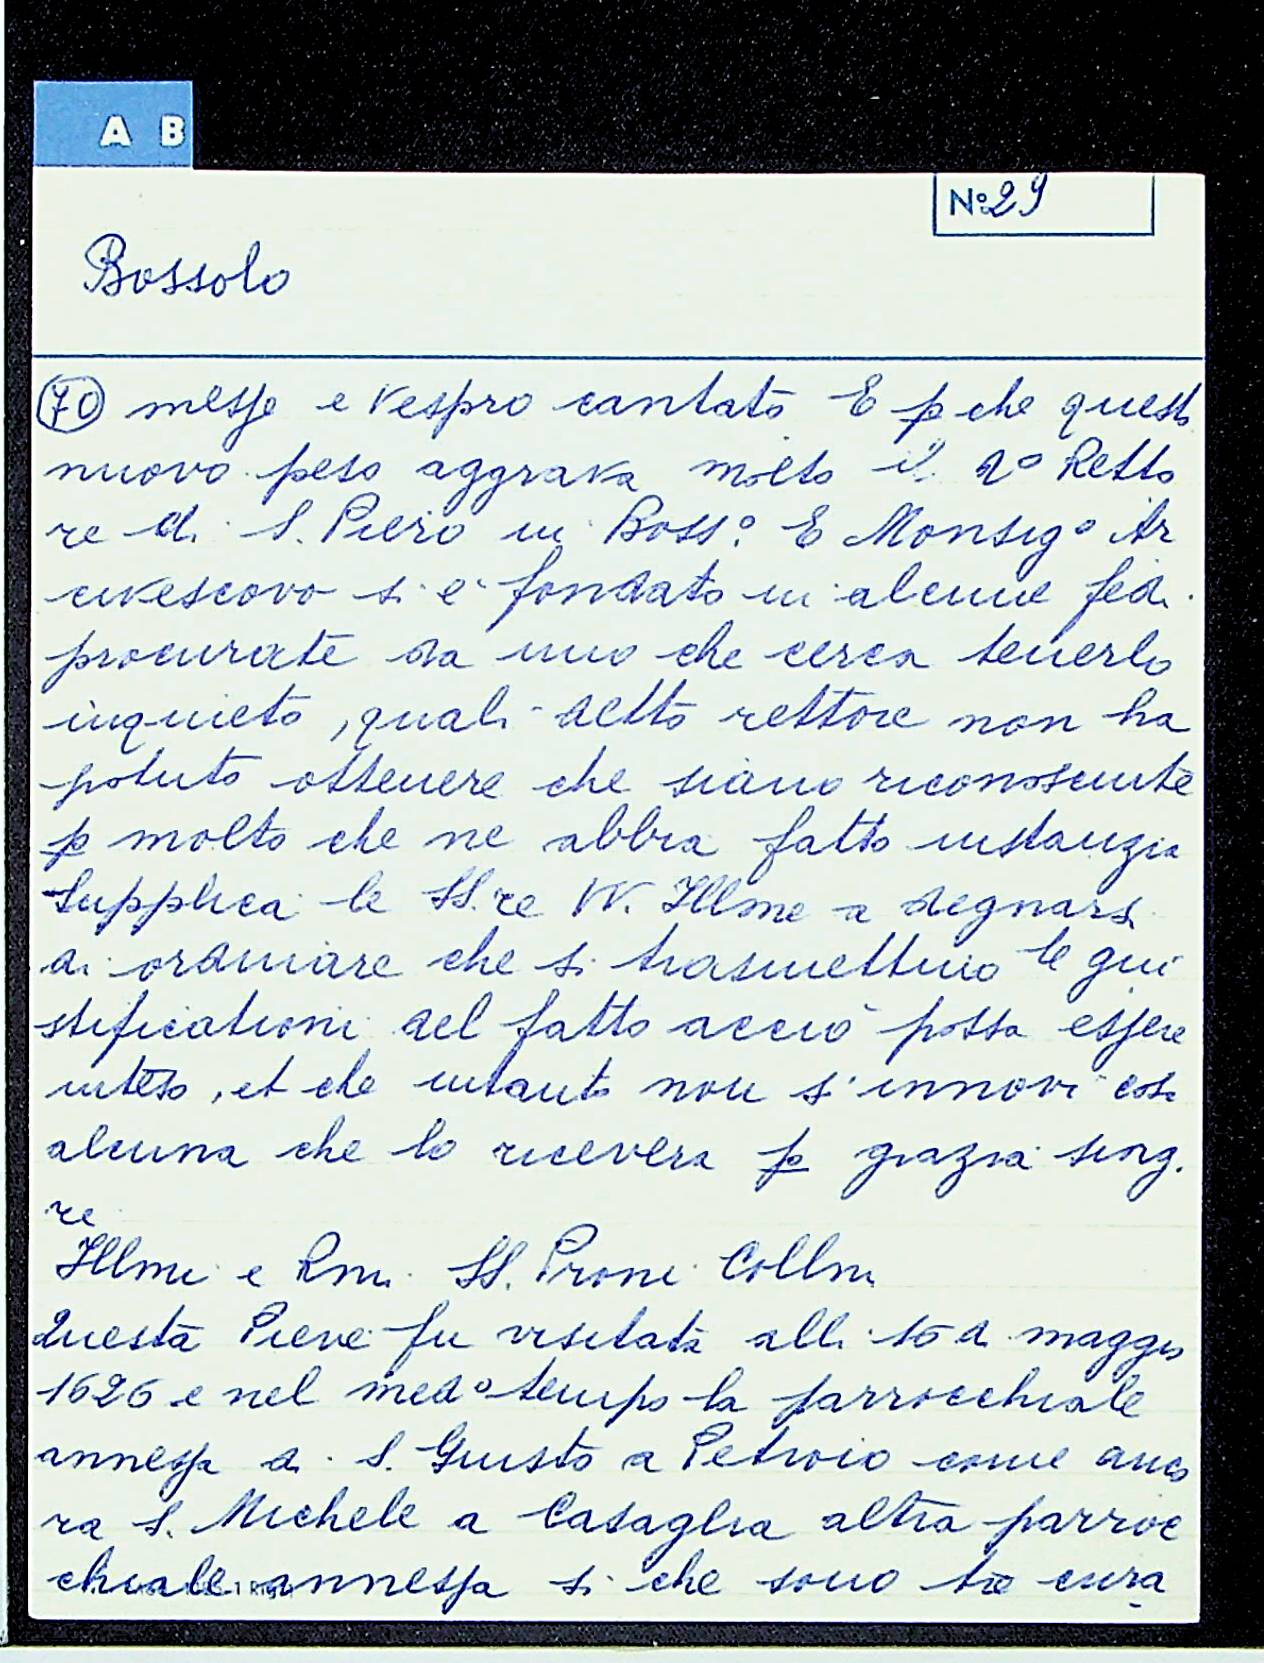 A B
N: 29
Bossolo
70 messe e Vespro cantato E p che questo
nuovo peso aggrava molto il 2º Retto
re di S. Piero in Boss.º E Monsigº Ar
civescovo si e fondato in alcune fedi
procurate da uno che cerca tenerlo
inquieto, quali detto rettore non ha
potuto ottenere che siano riconosciute
p molto che ne abbia fatto instanzia
Supplica le SS.re VV. Illme a degnarsi
di ordinare che si trasmettino le giu
stificationi del fatto acciò possa essere
inteso, et che intanto non s'innovi cosa
alcuna che lo riceverà p grazia sing.
re
Illmi e Rmi SS. Proni Collmi
Questa Pieve fu visitata alli 15 di maggio
1626 e nel medº tempo la parrocchiale
annessa di S. Giusto a Petroio come anco
ra S. Michele a Casaglia altra parroc
chiale annessa si che sono tre cura